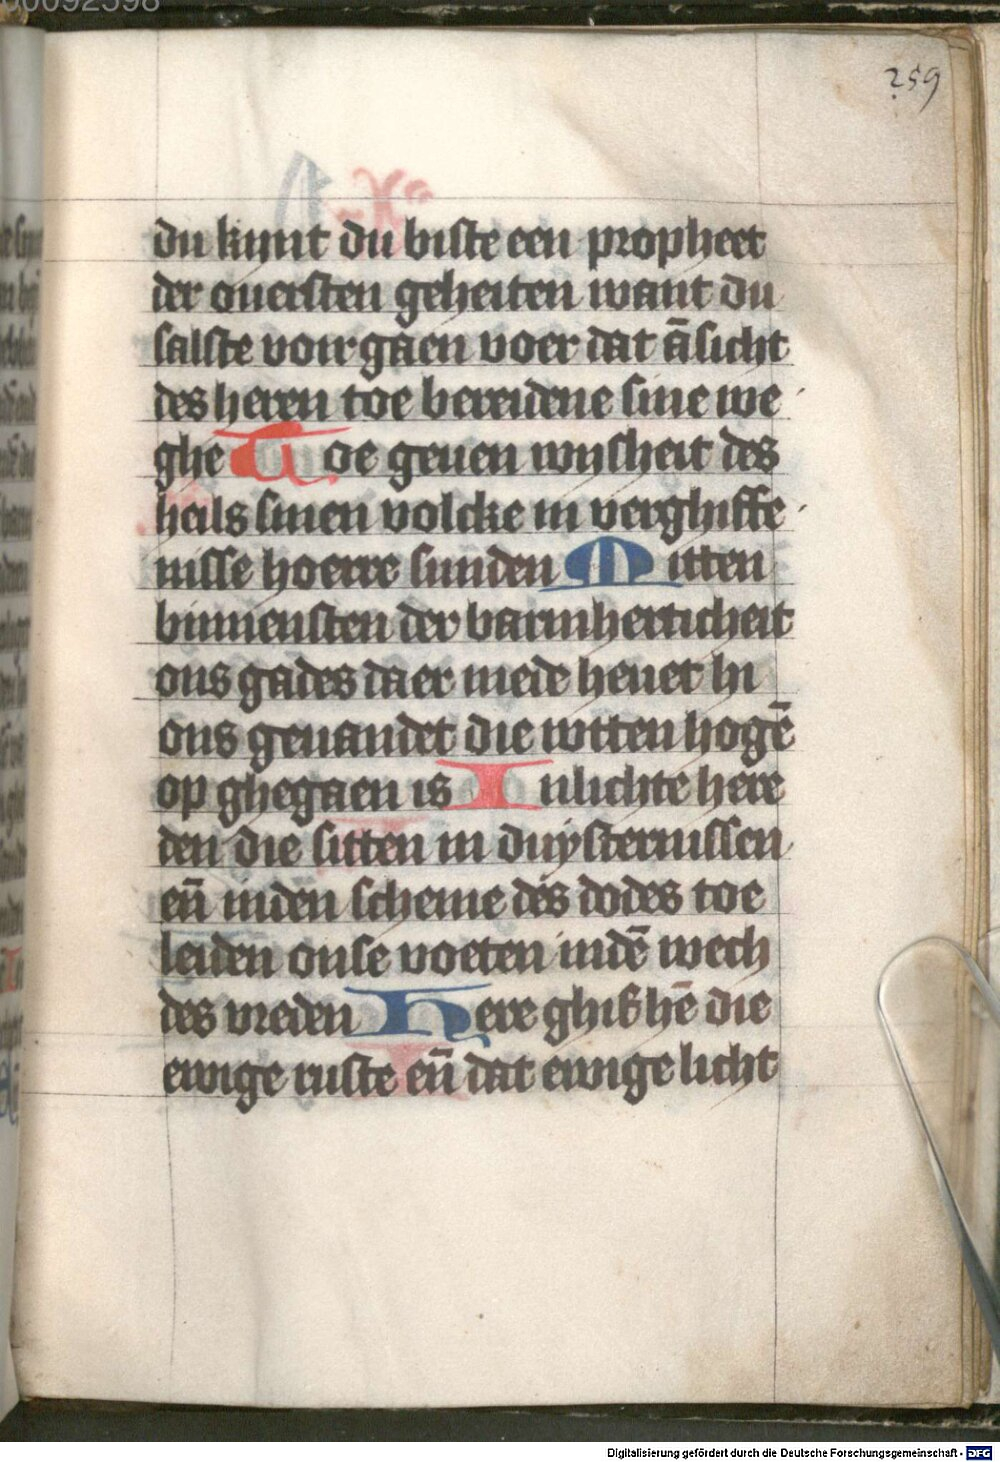 259
du kynt du biste een propheet
der ouersten geheiten want du
salste voir gaen voer dat āsicht
des heren toe bereidene sine we
ghe Toe geuen wijsheit des
heils sinen volcke in verghiffe
nisse hoerre sunden Mitten
binnensten der barmherticheit
ons gades daer mede heuet hi
ons geuandet die wtten hogē
op ghegaen is Inlichte here
den die sitten in duysternissen
en̄ inden scheme des dodes toe
leiden onse voeten indē wech
des vreden Here ghif hē die
ewige ruste en̄ dat ewige licht
Digitalisierung gefördert durch die Deutsche Forschungsgemeinschaft - DFG